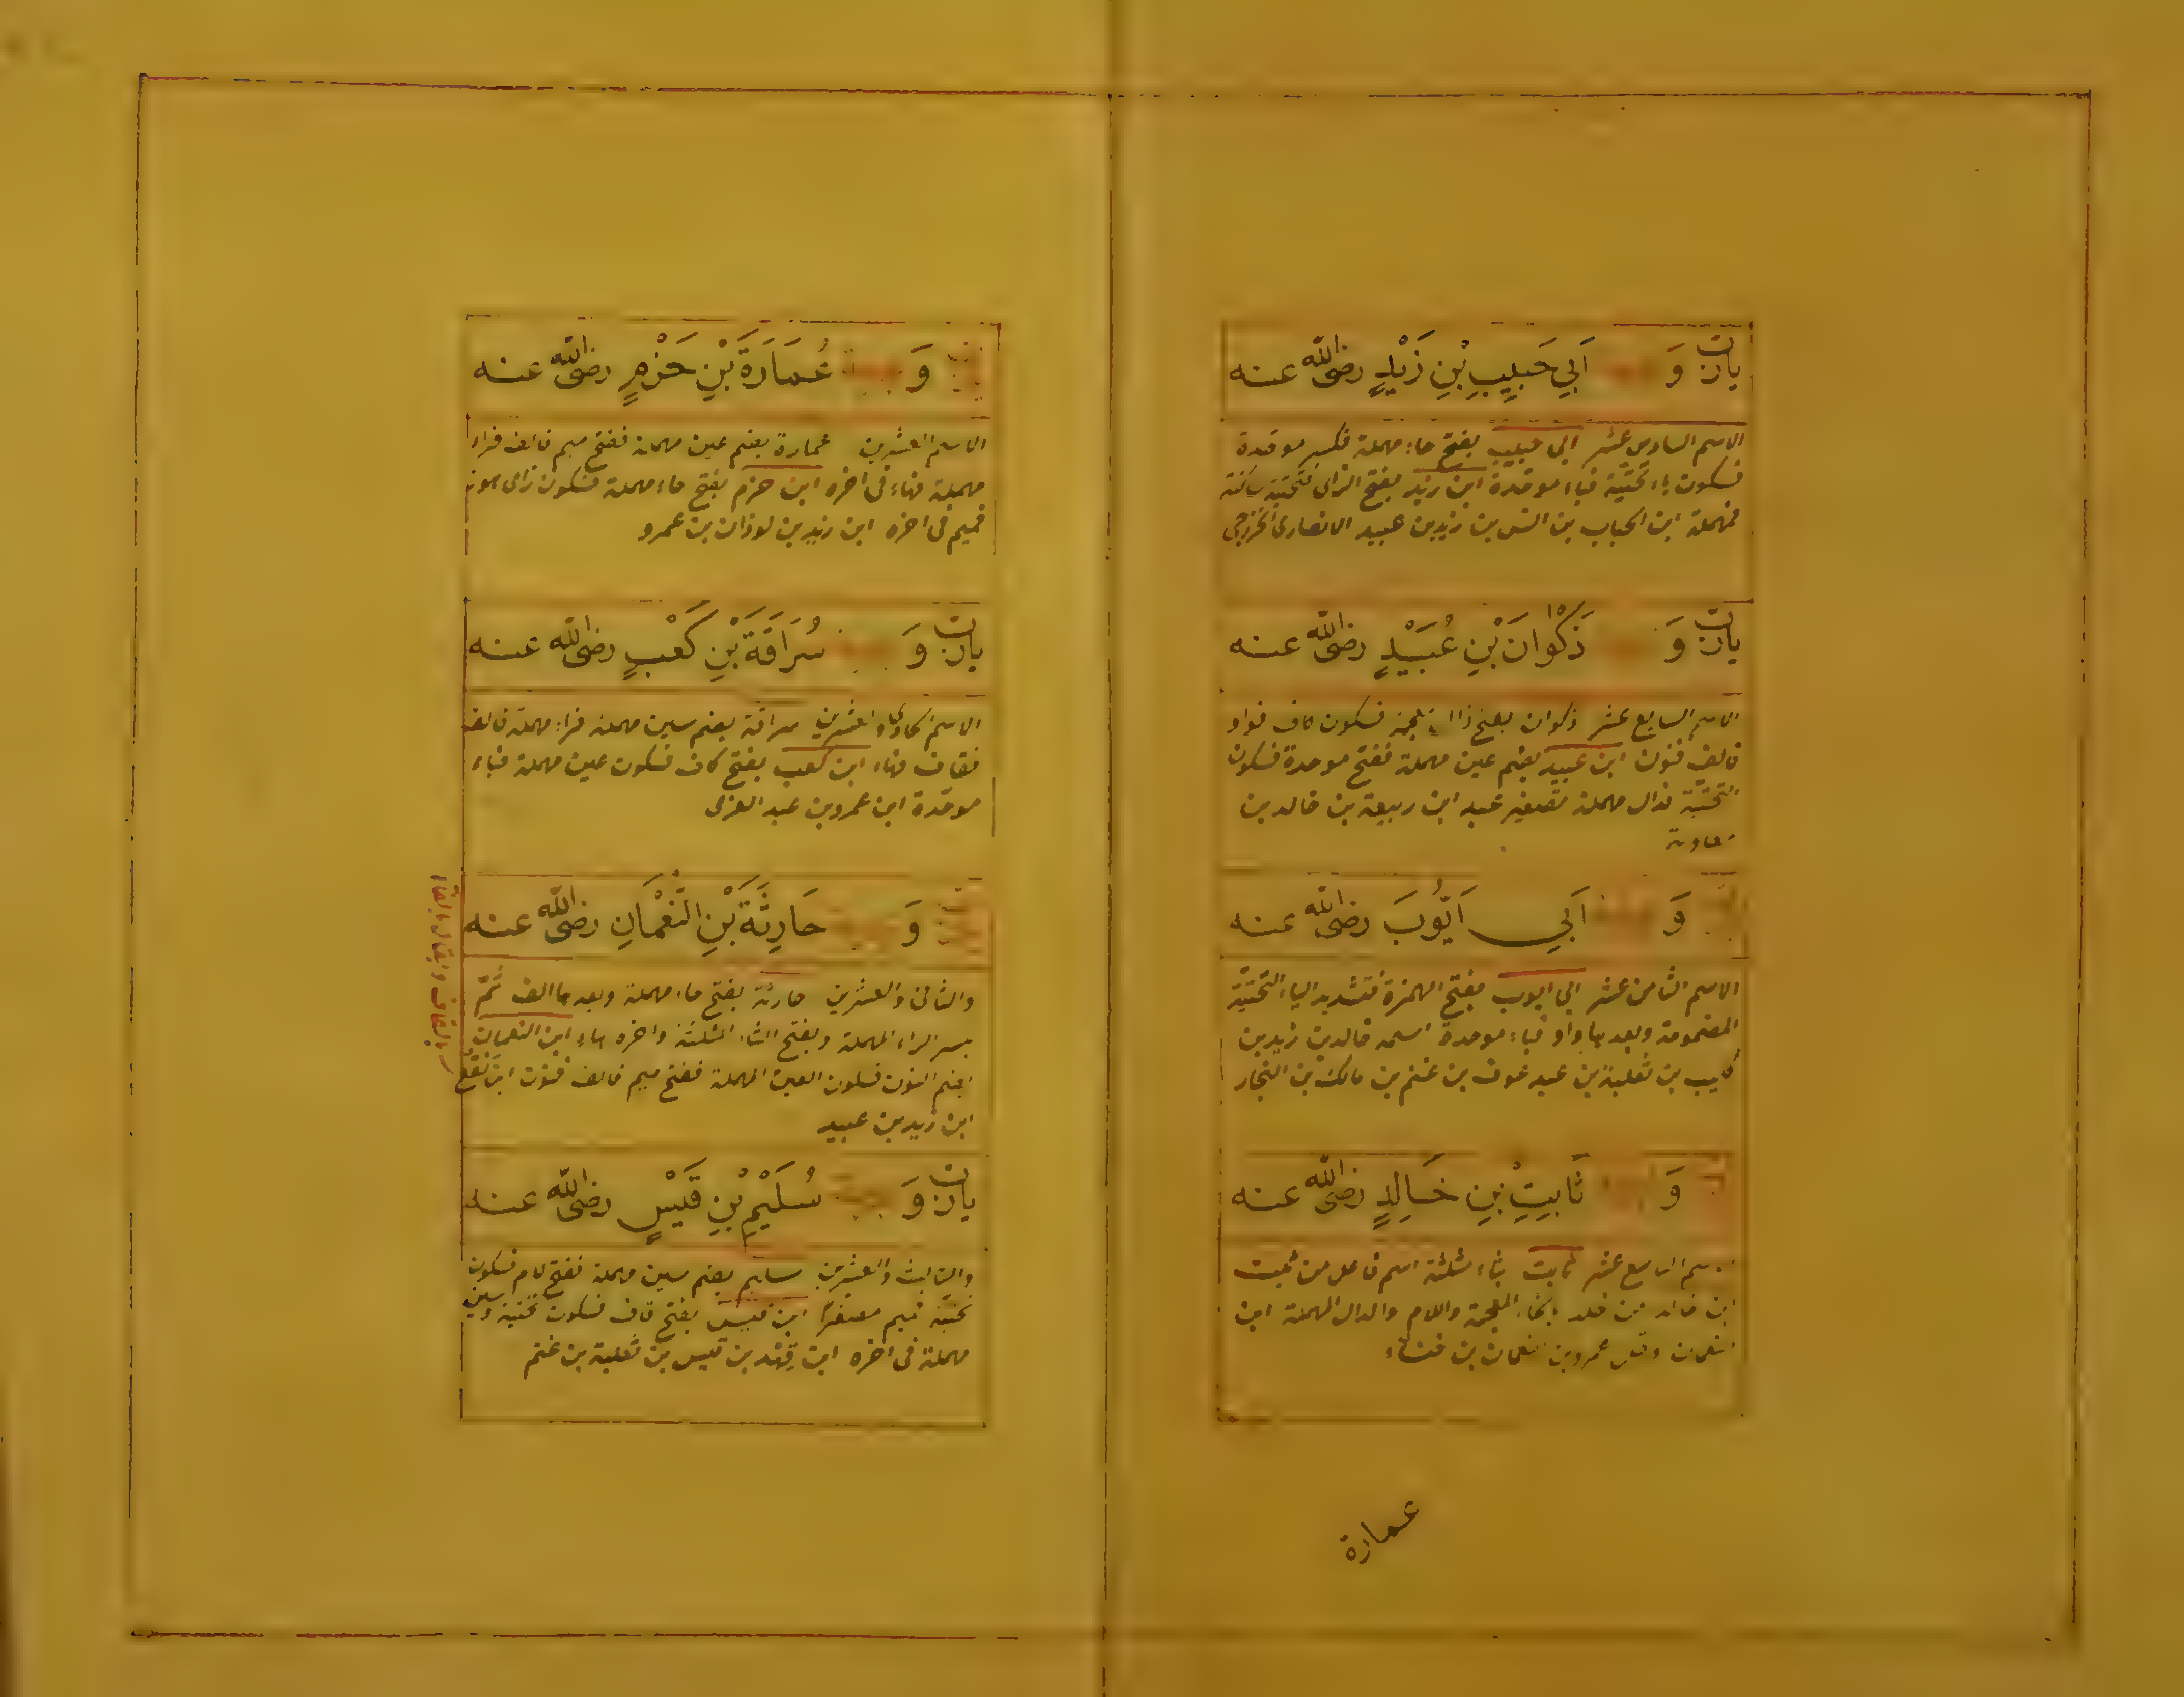 يارب وَ أَبِي حَبِيبِ بْنِ زَيْدٍ رضى الله عنه
الاسم السادس عشر ابى حبيب بفتح حاء مهملة فكسر موحدة
فسكون ياء تحتية فباء موحدة ابن زيد بفتح الزاى فتحتية ساكنة
فمهملة ابن الحباب بن انس بن زيد بن عبيد الانصارى الخزرجى
يارب وَ ذَكْوَانَ بْنِ عُبَيْدٍ رضى الله عنه
الاسم السابع عشر ذكوان بفتح ذال معجمة فسكون كاف فواو
فالف فنون ابن عبيد بضم عين مهملة ففتح موحدة فسكون
التحتية فدال مهملة تصغير عبد ابن ربيعة بن خالد بن
معاوية
وَ أَبِي أَيُّوبَ رضى الله عنه
الاسم الثامن عشر ابى ايوب بفتح الهمزة فتشديد الياء التحتيّة
المضمومة وبعدها واو فباء موحدة اسمه خالد بن زيد بن
كليب بن ثعلبة بن عبد عوف بن غنم بن مالك بن النجار
وَ ثَابِتِ بْنِ خَالِدٍ رضى الله عنه
الاسم التاسع عشر ثابت بثاء مثلثة اسم فاعل من ثبت
ابن خالد من خلد بالخاء المعجمة واللام والدال المهملة ابن
النعمان عمرو بن النعمان بن خنساء
عمارة
وَ عُمَارَةَ بْنِ حَزْمٍ رضى الله عنه
الاسم العشرين عمارة بضم عين مهملة ففتح ميم فالف فراء
مهملة فهاء فى اخره ابن حزم بفتح حاء مهملة فسكون زاى
فميم فى اخره ابن زيد بن لوذان بن عمرو
يارب وَ سُرَاقَةَ بْنِ كَعْبٍ رضى الله عنه
الاسم الحادى والعشرين سراقة بضم سين مهملة فراء مهملة فالف
فقاف فهاء ابن كعب بفتح كاف فسكون عين مهملة فباء
موحدة ابن عمرو بن عبد العزى
وَ حَارِثَةَ بْنِ النُّعْمَانِ رضى الله عنه
والثانى والعشرين حارثة بفتح حاء مهملة وبعدها الف ثمّ
بكسر الراء المهملة وبفتح الثاء المثلثة واخره هاء ابن النعمان
بضم النون فسكون العين المهملة ففتح ميم فالف فنون ابن نقع
ابن زيد بن عبيد
بالقاف ويقال بالفاء
يارب وَ سُلَيْمِ بْنِ قَيْسٍ رضى الله عنه
والثالث والعشرين سليم بضم سين مهملة ففتح لام فسكون
تحتية فميم مصغرًا ابن قيس بفتح قاف فسكون تحتية وسين
مهملة فى اخره ابن قهد بن قيس بن ثعلبة بن غنم